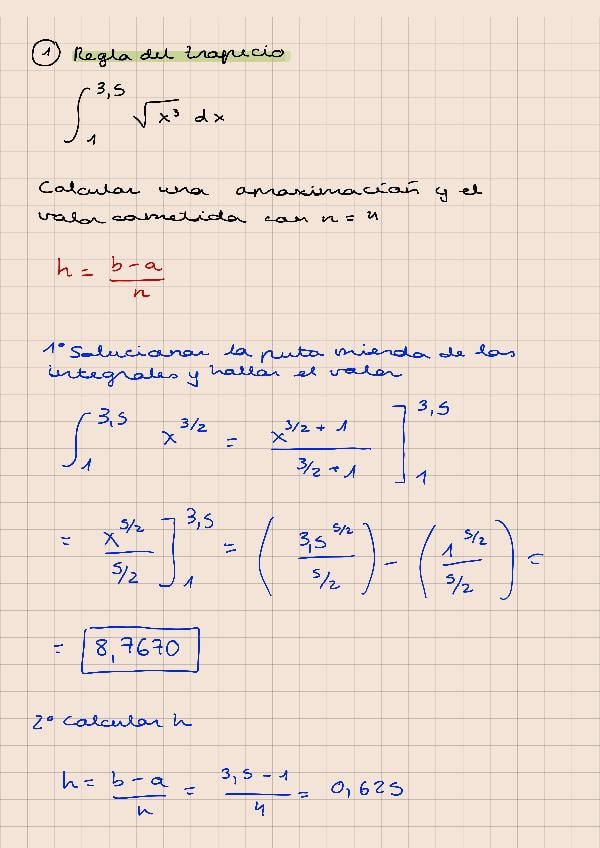 1 Regla del trapecio
∫₁^3,5 √x³ dx
Calcular una aproximación y el
valor cometida con n = 4
h = (b - a)/n
1º Solucionar la puta mierda de las
integrales y hallar el valor
∫₁^3,5 x^3/2 = x^(3/2 + 1)/(3/2 + 1) ]₁^3,5
= x^5/2/(5/2) ]₁^3,5 = (3,5^5/2/(5/2)) - (1^5/2/(5/2)) =
= 8,7670
2º Calcular h
h = (b - a)/n = (3,5 - 1)/4 = 0,625